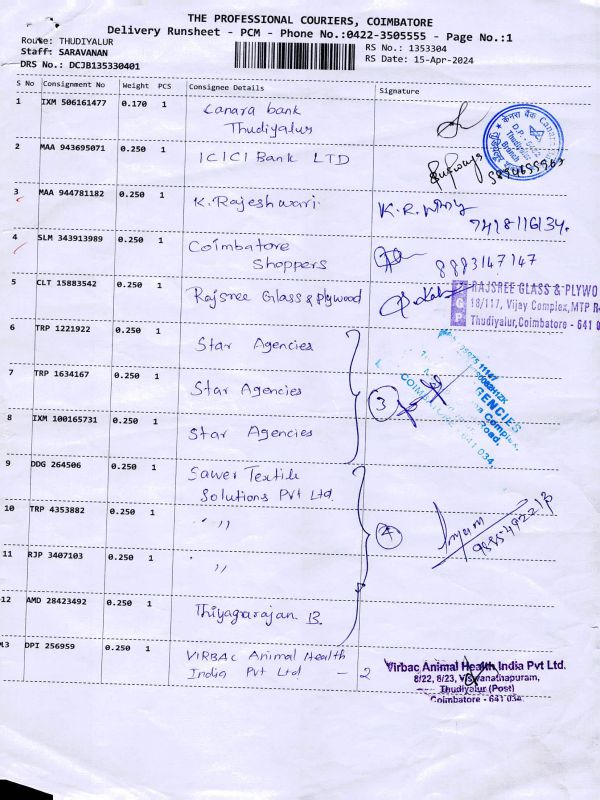 THE PROFESSIONAL COURIERS, COIMBATORE
Delivery Runsheet - PCM - Phone No.:0422-3505555 - Page No.:1
Route: THUDIYALUR
Staff: SARAVANAN
DRS No.: DCJB135330401
RS No.: 1353304
RS Date: 15-Apr-2024
S No Consignment No Weight PCS Consignee Details Signature
1 IXM 506161477 0.170 1 Canara bank
Thudiyalur
केनरा बैंक
2 MAA 943695071 0.250 1 ICICI Bank LTD
3 MAA 944781182 0.250 1 K. Rajeshwari.
7418116134.
4 SLM 343913989 0.250 1 Coimbatore
Shoppers
8883147147
5 CLT 15883542 0.250 1 Rajsree Glass & Plywood
RAJSREE GLASS & PLYWO
18/117, Vijay Complex, MTP R
Thudiyalur, Coimbatore - 641 0
6 TRP 1221922 0.250 1 Star Agencies
7 TRP 1634167 0.250 1 Star Agencies
3
GENCIES
Complex,
Road,
COIMBATORE - 641 034.
8 IXM 100165731 0.250 1 Star Agencies
9 DDG 264506 0.250 1 Sawer Textile
Solutions Pvt Ltd.
10 TRP 4353882 0.250 1 ' ,,
4
11 RJP 3407103 0.250 1 ' ,,
12 AMD 28423492 0.250 1 Thiyagarajan B.
13 DPI 256959 0.250 1 VIRBAC Animal Health
India Pvt Ltd - 2
Virbac Animal Health India Pvt Ltd.
8/22, 8/23, Viswanathapuram,
Thudiyalur (Post)
Coimbatore - 641 034